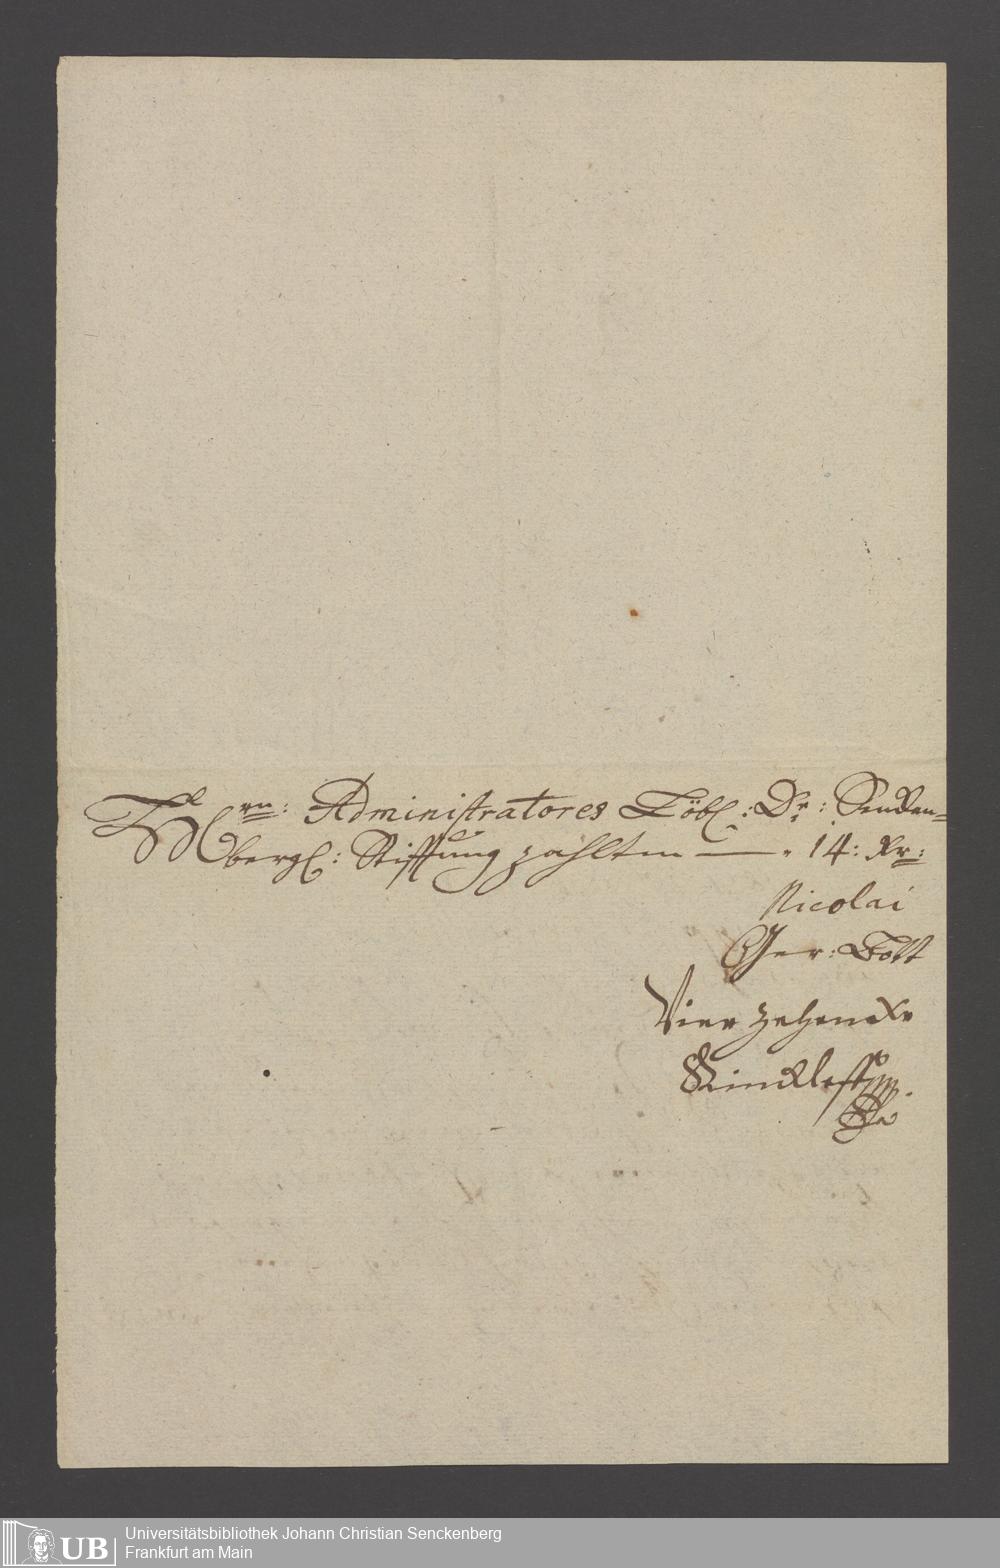 Hrn: Administratores Löbl: Dr: Sencken=
bergl: Stifftung zahlten — 14: Kr:
Nicolai
Ger: Bott
Vier zehen Kr
UB
Universitätsbibliothek Johann Christian Senckenberg
Frankfurt am Main